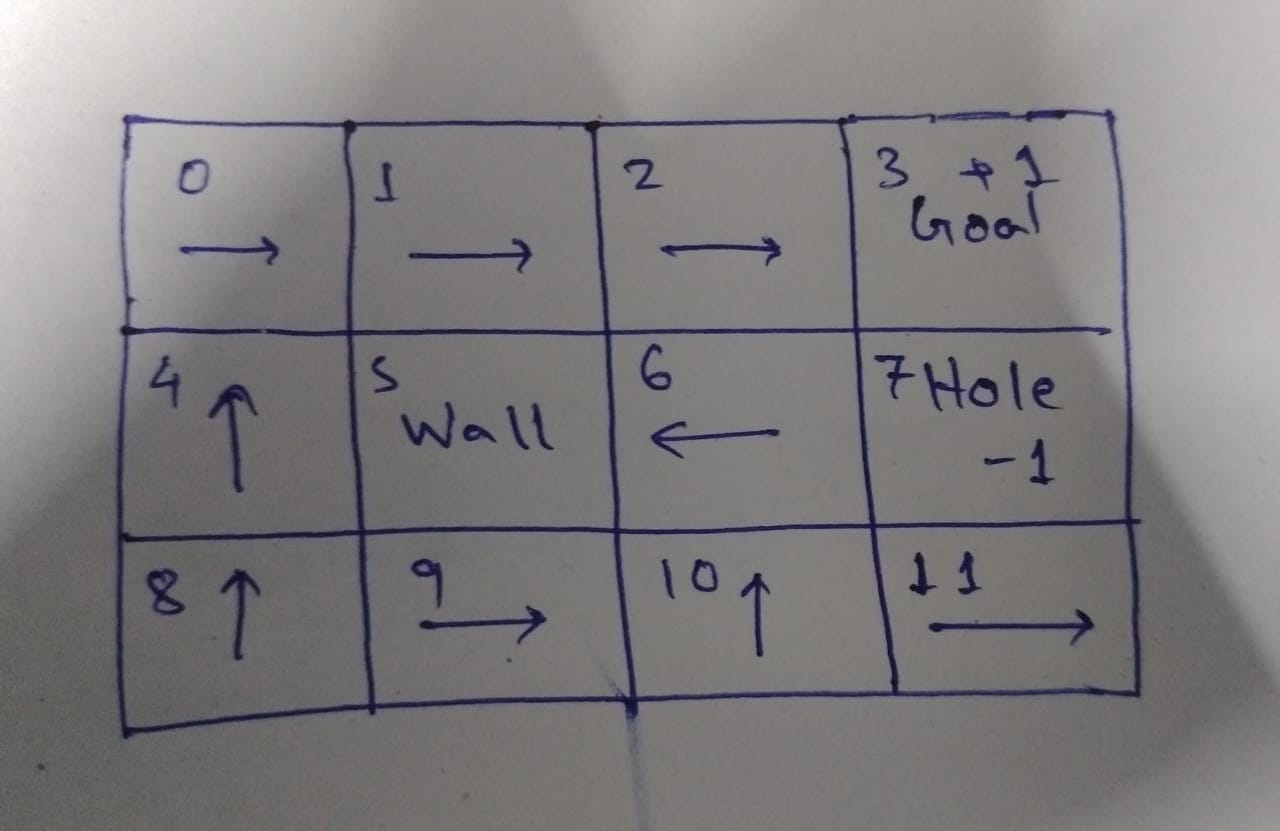 0 →
1 →
2 →
3 +1
Goal
4 ↑
5
Wall
6 ←
7 Hole
-1
8 ↑
9 →
10 ↑
11 →